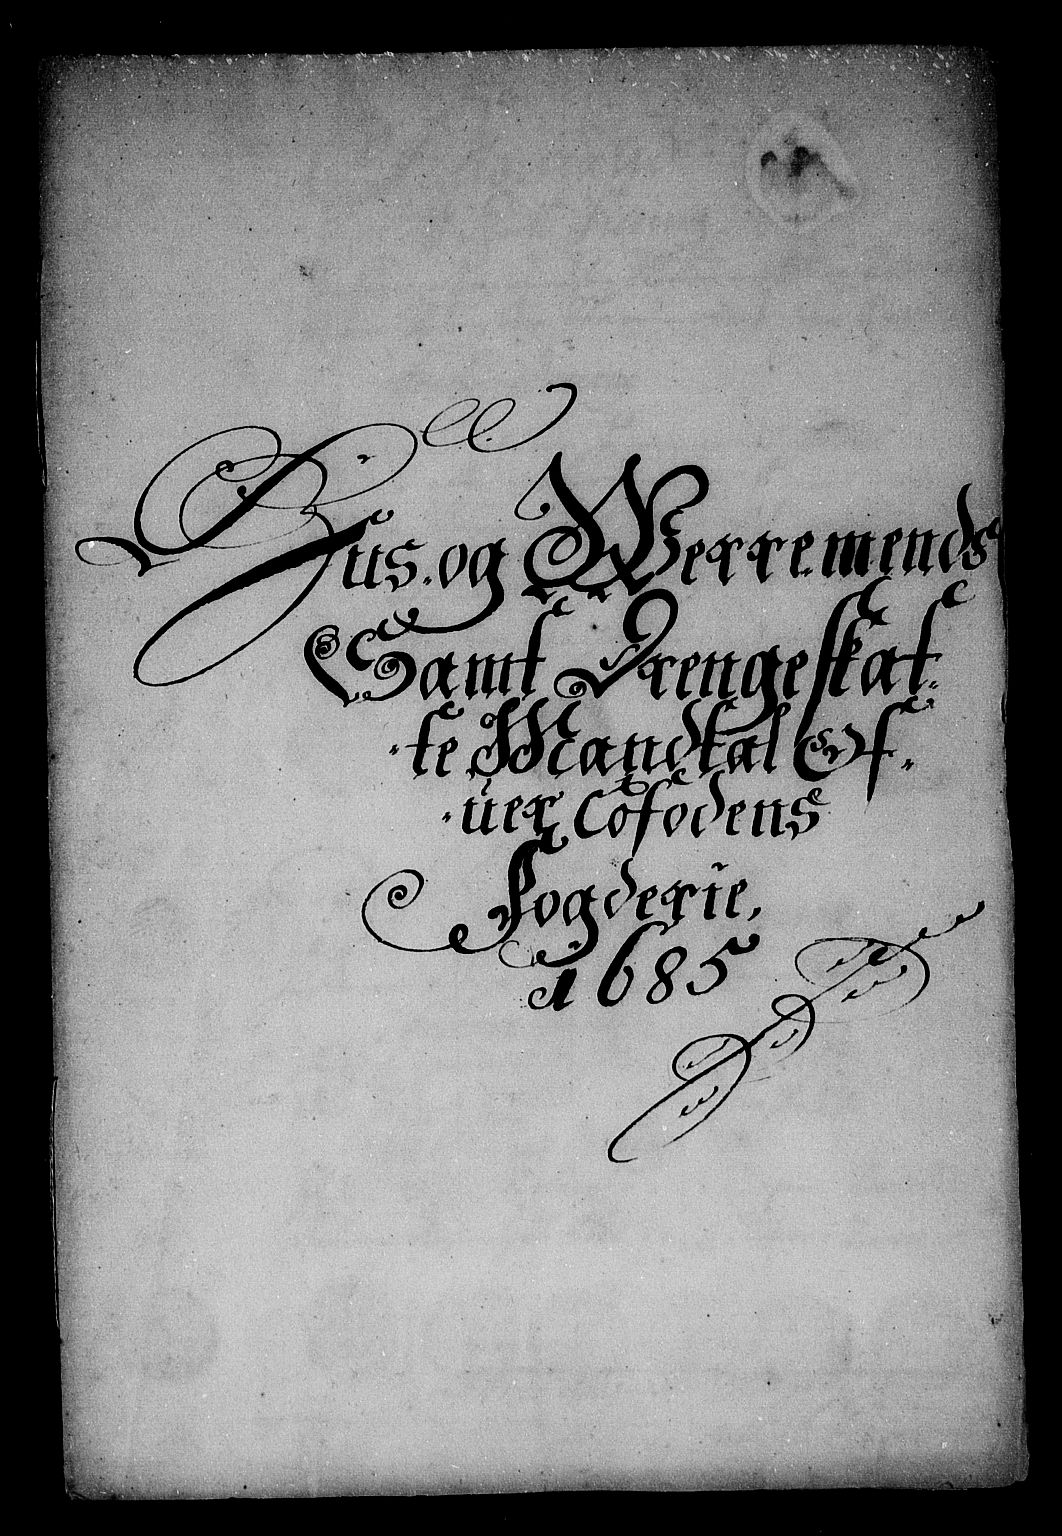 Hus. og Werre.mends
Samt Drengeskat-
-te Mandtal Of-
-uer Cofodens
Fogderie,
1685